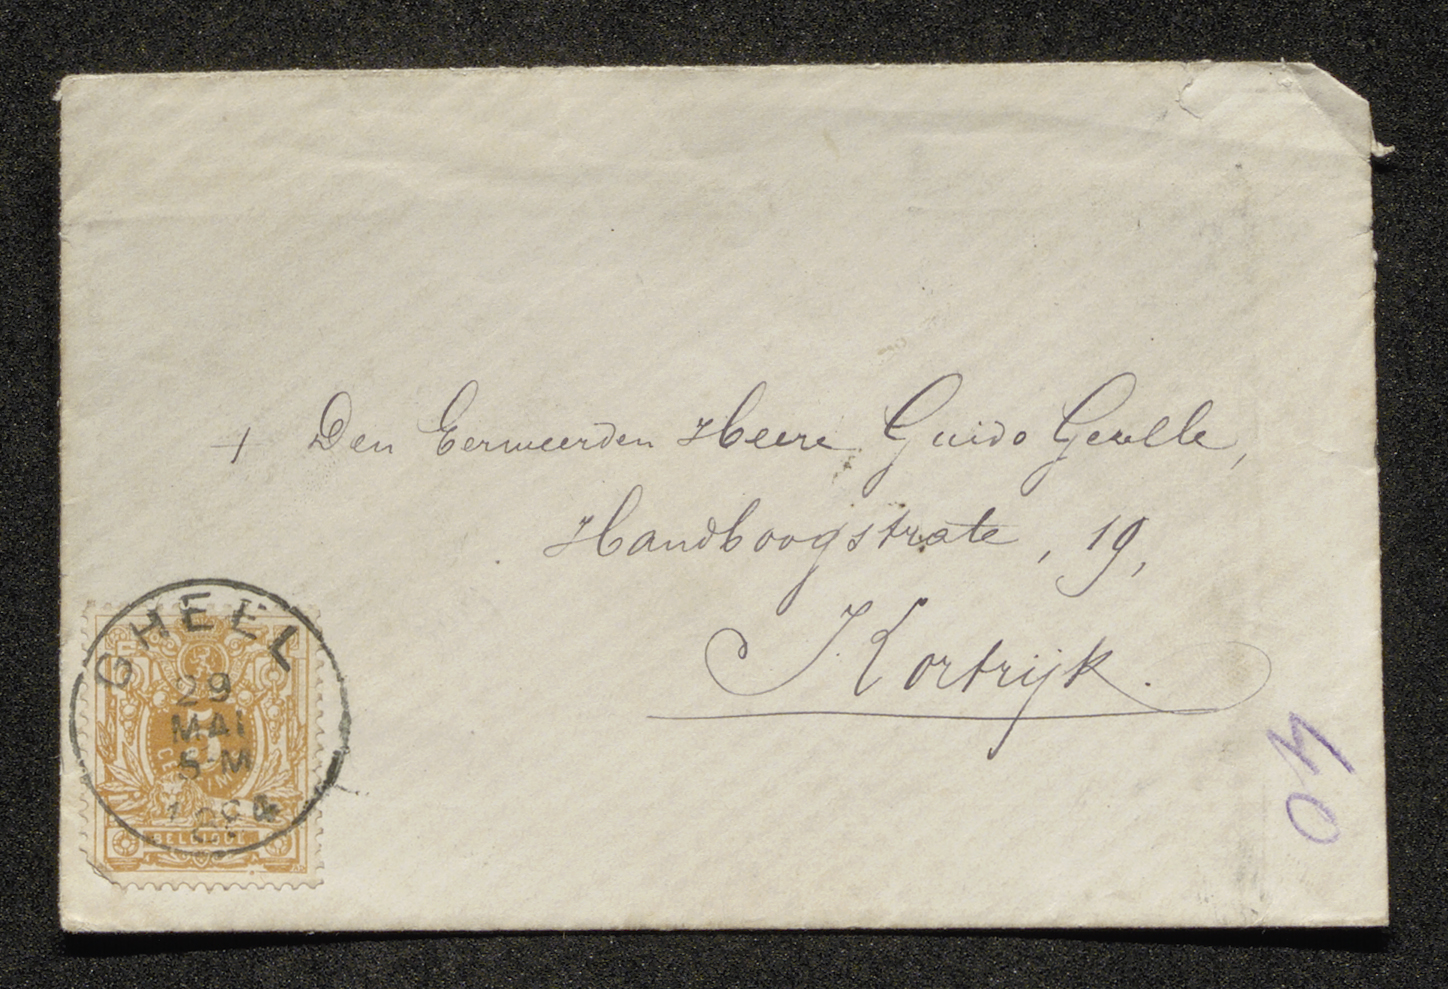 + Den Eerweerden Heere Guido Gezelle,
Handboogstrate, 19,
Kortrijk.
GHEEL
29
MAI
5-M
1884
5
BELGIQUE
40